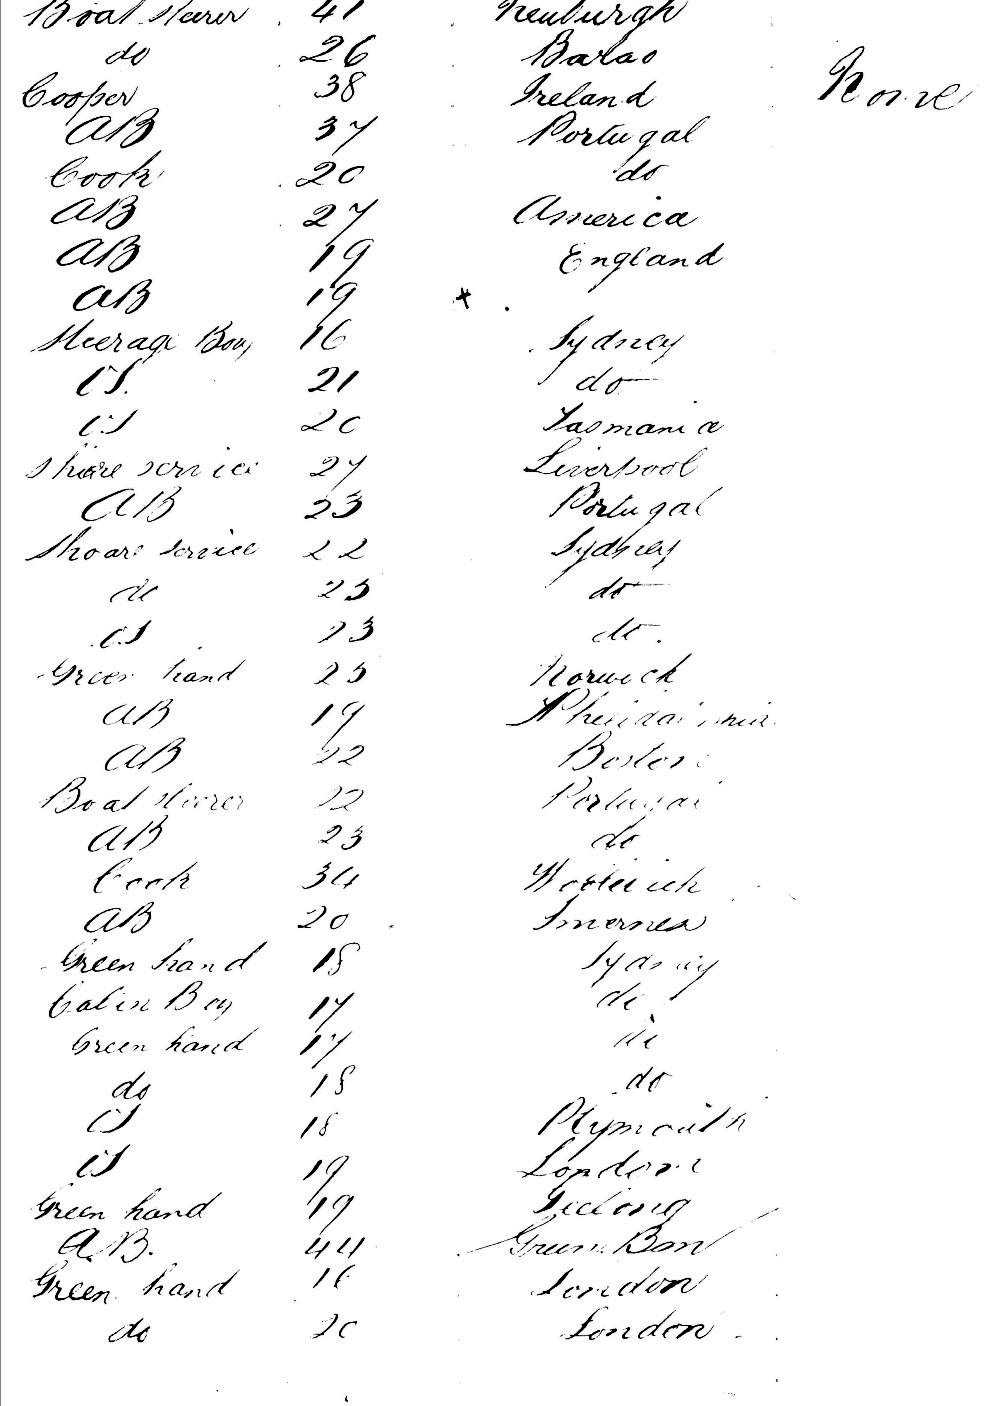 Boat steerer 41 Newburgh
do 26 Barao
Cooper 38 Ireland None
AB 37 Portugal
Cook 20 do
AB 27 America
AB 19 England
AB 19 x
Steerage Boy 16 Sydney
OS. 21 do
OS 20 Tasmania
Share service 27 Liverpool
AB 23 Portugal
Shoare service 22 Sydney
do 25 do
OS 23 do.
Green hand 25 Norwick
AB 19
AB 22 Boston
Boat steerer 22 Portugal
AB 23 do
Cook 34 Woolwich
AB 20 Smernea
Green hand 18 Sydney
Cabin Boy 17 do
Green hand 17 do
do 18 do
OS 18 Plymouth
OS 19 London
Green hand 19 Geelong
A.B. 44
Green hand 16 London
do 20 London